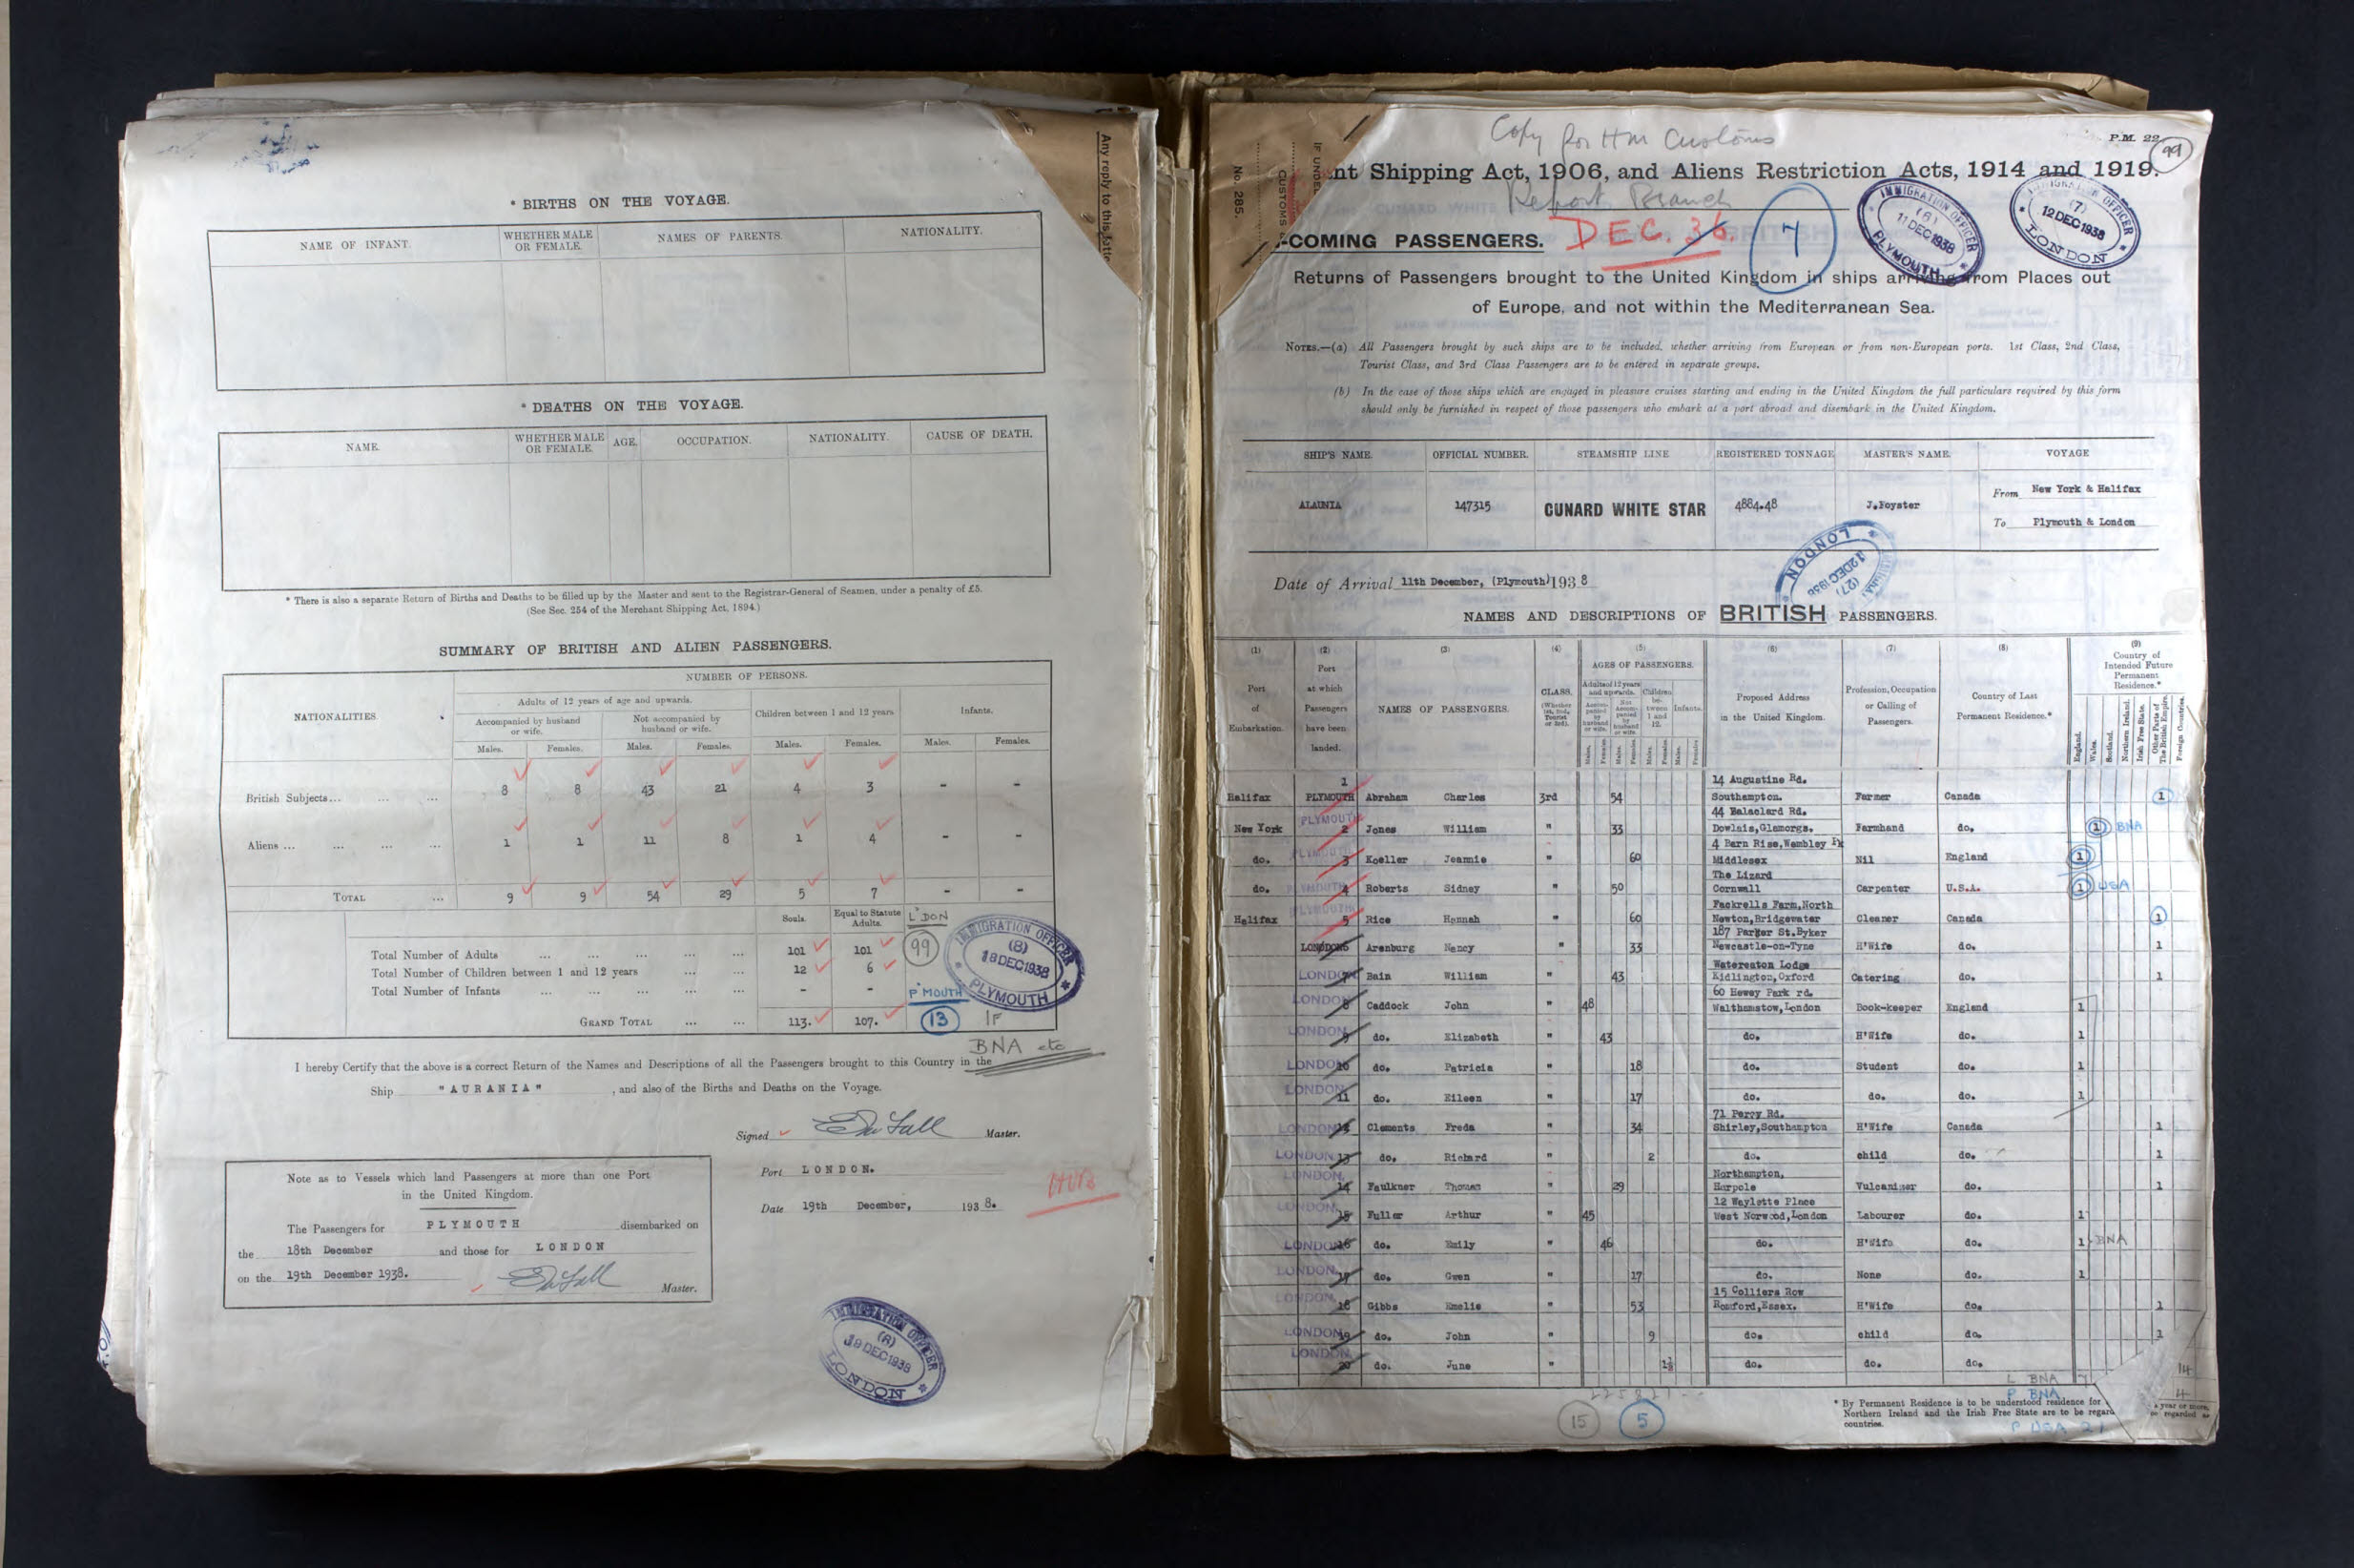 * BIRTHS ON THE VOYAGE.
NAME OF INFANT. WHETHER MALE OR FEMALE. NAMES OF PARENTS. NATIONALITY.
* DEATHS ON THE VOYAGE.
NAME. WHETHER MALE OR FEMALE. AGE. OCCUPATION. NATIONALITY. CAUSE OF DEATH.
* There is also a separate Return of Births and Deaths to be filled up by the Master and sent to the Registrar-General of Seamen, under a penalty of £5.
(See Sec. 254 of the Merchant Shipping Act, 1894.)
SUMMARY OF BRITISH AND ALIEN PASSENGERS.
NATIONALITIES. NUMBER OF PERSONS.
Adults of 12 years of age and upwards. Children between 1 and 12 years Infants.
Accompanied by husband or wife. Not accompanied by husband or wife.
Males. Females. Males. Females. Males. Females. Males. Females.
British Subjects... ... ... 8 8 43 21 4 3 - -
Aliens ... ... ... ... 1 1 11 8 1 4 - -
TOTAL ... 9 9 54 29 5 7 - -
Souls. Equal to Statute Adults. L'DON
Total Number of Adults ... ... ... ... ... 101 101 99
Total Number of Children between 1 and 12 years ... ... 12 6
Total Number of Infants ... ... ... ... ... - - P'MOUTH
GRAND TOTAL ... ... 113. 107. 13 1F
IMMIGRATION OFFICER (8) 18 DEC 1938 * PLYMOUTH *
BNA etc
I hereby Certify that the above is a correct Return of the Names and Descriptions of all the Passengers brought to this Country in the
Ship "AURANIA" , and also of the Births and Deaths on the Voyage.
Signed Master.
Port LONDON.
Date 19th December, 1938.
Note as to Vessels which land Passengers at more than one Port
in the United Kingdom.
The Passengers for PLYMOUTH disembarked on
the 18th December and those for LONDON
on the 19th December 1938.
Master.
IMMIGRATION OFFICER LONDON *
Any reply to this
No. 285.
CUSTOMS
Copy for HM Customs
Report Branch
P.M. 22
99
nt Shipping Act, 1906, and Aliens Restriction Acts, 1914 and 1919.
COMING PASSENGERS. DEC. 36. 7
IMMIGRATION OFFICER (6) 11 DEC 1938 PLYMOUTH *
IMMIGRATION OFFICER (7) 12 DEC 1938 * LONDON *
Returns of Passengers brought to the United Kingdom in ships arriving from Places out
of Europe, and not within the Mediterranean Sea.
NOTES.—(a) All Passengers brought by such ships are to be included, whether arriving from European or from non-European ports. 1st Class, 2nd Class,
Tourist Class, and 3rd Class Passengers are to be entered in separate groups.
(b) In the case of those ships which are engaged in pleasure cruises starting and ending in the United Kingdom the full particulars required by this form
should only be furnished in respect of those passengers who embark at a port abroad and disembark in the United Kingdom.
SHIP'S NAME. OFFICIAL NUMBER. STEAMSHIP LINE REGISTERED TONNAGE MASTER'S NAME. VOYAGE
ALAUNIA 147315 CUNARD WHITE STAR 4884.48 J.Foyster From New York & Halifax
To Plymouth & London
LONDON (27) 12 DEC 1938
Date of Arrival 11th December, (Plymouth) 1938
NAMES AND DESCRIPTIONS OF BRITISH PASSENGERS.
(1) (2) (3) (4) (5) (6) (7) (8) (9)
Port of Embarkation. Port at which Passengers have been landed. NAMES OF PASSENGERS. CLASS. (Whether 1st, 2nd, Tourist or 3rd). AGES OF PASSENGERS. Proposed Address in the United Kingdom. Profession, Occupation or Calling of Passengers. Country of Last Permanent Residence.* Country of Intended Future Permanent Residence.*
Adults of 12 years and upwards. Children between 1 and 12. Infants.
Accompanied by husband or wife. Not Accompanied by husband or wife.
Males. Females. Males. Females. Males. Females. Males. Females.
England. Wales. Scotland. Northern Ireland. Irish Free State. Other Parts of The British Empire. Foreign Countries.
Halifax PLYMOUTH 1 Abraham Charles 3rd 54 14 Augustine Rd. Southampton. Farmer Canada 1
New York PLYMOUTH 2 Jones William " 33 44 Balaclard Rd. Dowlais,Glamorgs. Farmhand do. 1 BNA
do. PLYMOUTH 3 Koeller Jeannie " 60 4 Barn Rise,Wembley Pk Middlesex Nil England 1
do. PLYMOUTH 4 Roberts Sidney " 50 The Lizard Cornwall Carpenter U.S.A. 1 USA
Halifax PLYMOUTH 5 Rice Hannah " 60 Fackrells Farm,North Newton,Bridgewater Cleaner Canada 1
LONDON 6 Arenburg Nancy " 33 187 Parker St.Byker Newcastle-on-Tyne H'Wife do. 1
LONDON 7 Bain William " 43 Watereaton Lodge Kidlington,Oxford Catering do. 1
LONDON 8 Caddock John " 48 60 Hewey Park rd. Walthamstow,London Book-keeper England 1
LONDON 9 do. Elizabeth " 43 do. H'Wife do. 1
LONDON 10 do. Patricia " 18 do. Student do. 1
LONDON 11 do. Eileen " 17 do. do. do. 1
LONDON 12 Clements Freda " 34 71 Percy Rd. Shirley,Southampton H'Wife Canada 1
LONDON 13 do. Richard " 2 do. child do. 1
LONDON 14 Faulkner Thomas " 29 Northampton, Harpole Vulcaniser do. 1
LONDON 15 Fuller Arthur " 45 12 Waylette Place West Norwood,London Labourer do. 1
LONDON 16 do. Emily " 46 do. H'Wife do. 1 BNA
LONDON 17 do. Gwen " 17 do. None do. 1
LONDON 18 Gibbs Emelie " 53 15 Colliers Row Romford,Essex. H'Wife do. 1
LONDON 19 do. John " 9 do. child do. 1
LONDON 20 do. June " 1½ do. do. do.
14
L BNA 7
P BNA 4
15 5
* By Permanent Residence is to be understood residence for a year or more.
Northern Ireland and the Irish Free State are to be regarded as
countries.
P USA 21